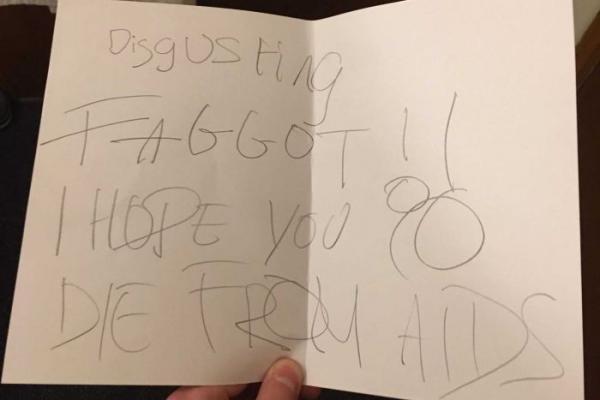 Disgusting
FAGGOT!!
I HOPE YOU go
DIE FROM AIDS